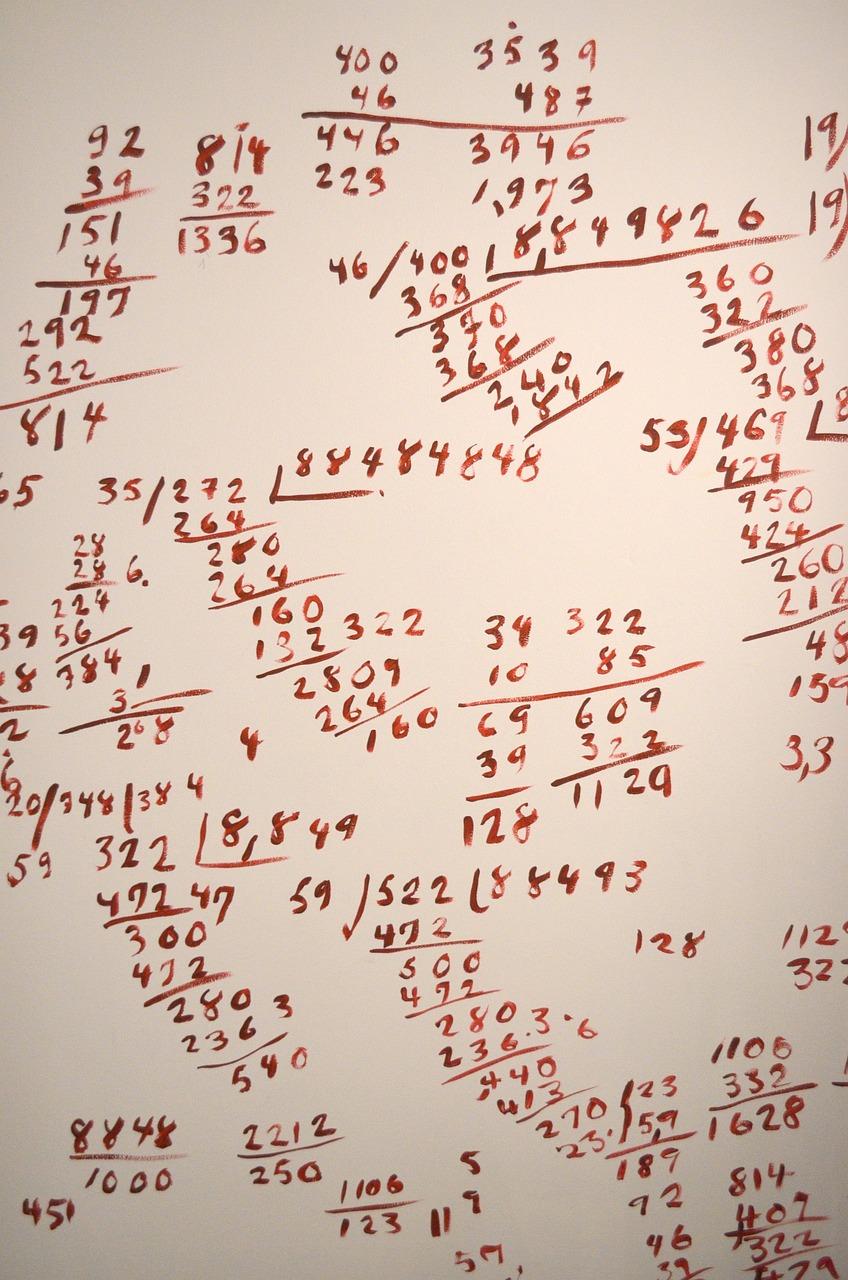 400 3539
46 487
446 3946
223 1,973
92
39
151
46
197
814
322
1336
292
522
814
19/
19)
46/400 18,849826
368
370
368
2,40
1,842
360
322
380
368
53/469
429
950
424
260
212
48
159
3,3
65
35/272 88484848
264
280
264
160
132 322
2809
264
160
28
28 6.
224
56
784
39
18
2
31
268
4
34 322
10 85
69 609
39 322
128 1129
20/348/384
59
322 8,849
472 47
300
472
280 3
2363
540
59/522 88493
472
500
472
280.3.6
236.3
440
413
270
23.
128
1129
322
123
59
189
92
46
39
1106
332
1628
814
407
322
8848
1000
451
2212
250
1106
123
5
119
57,